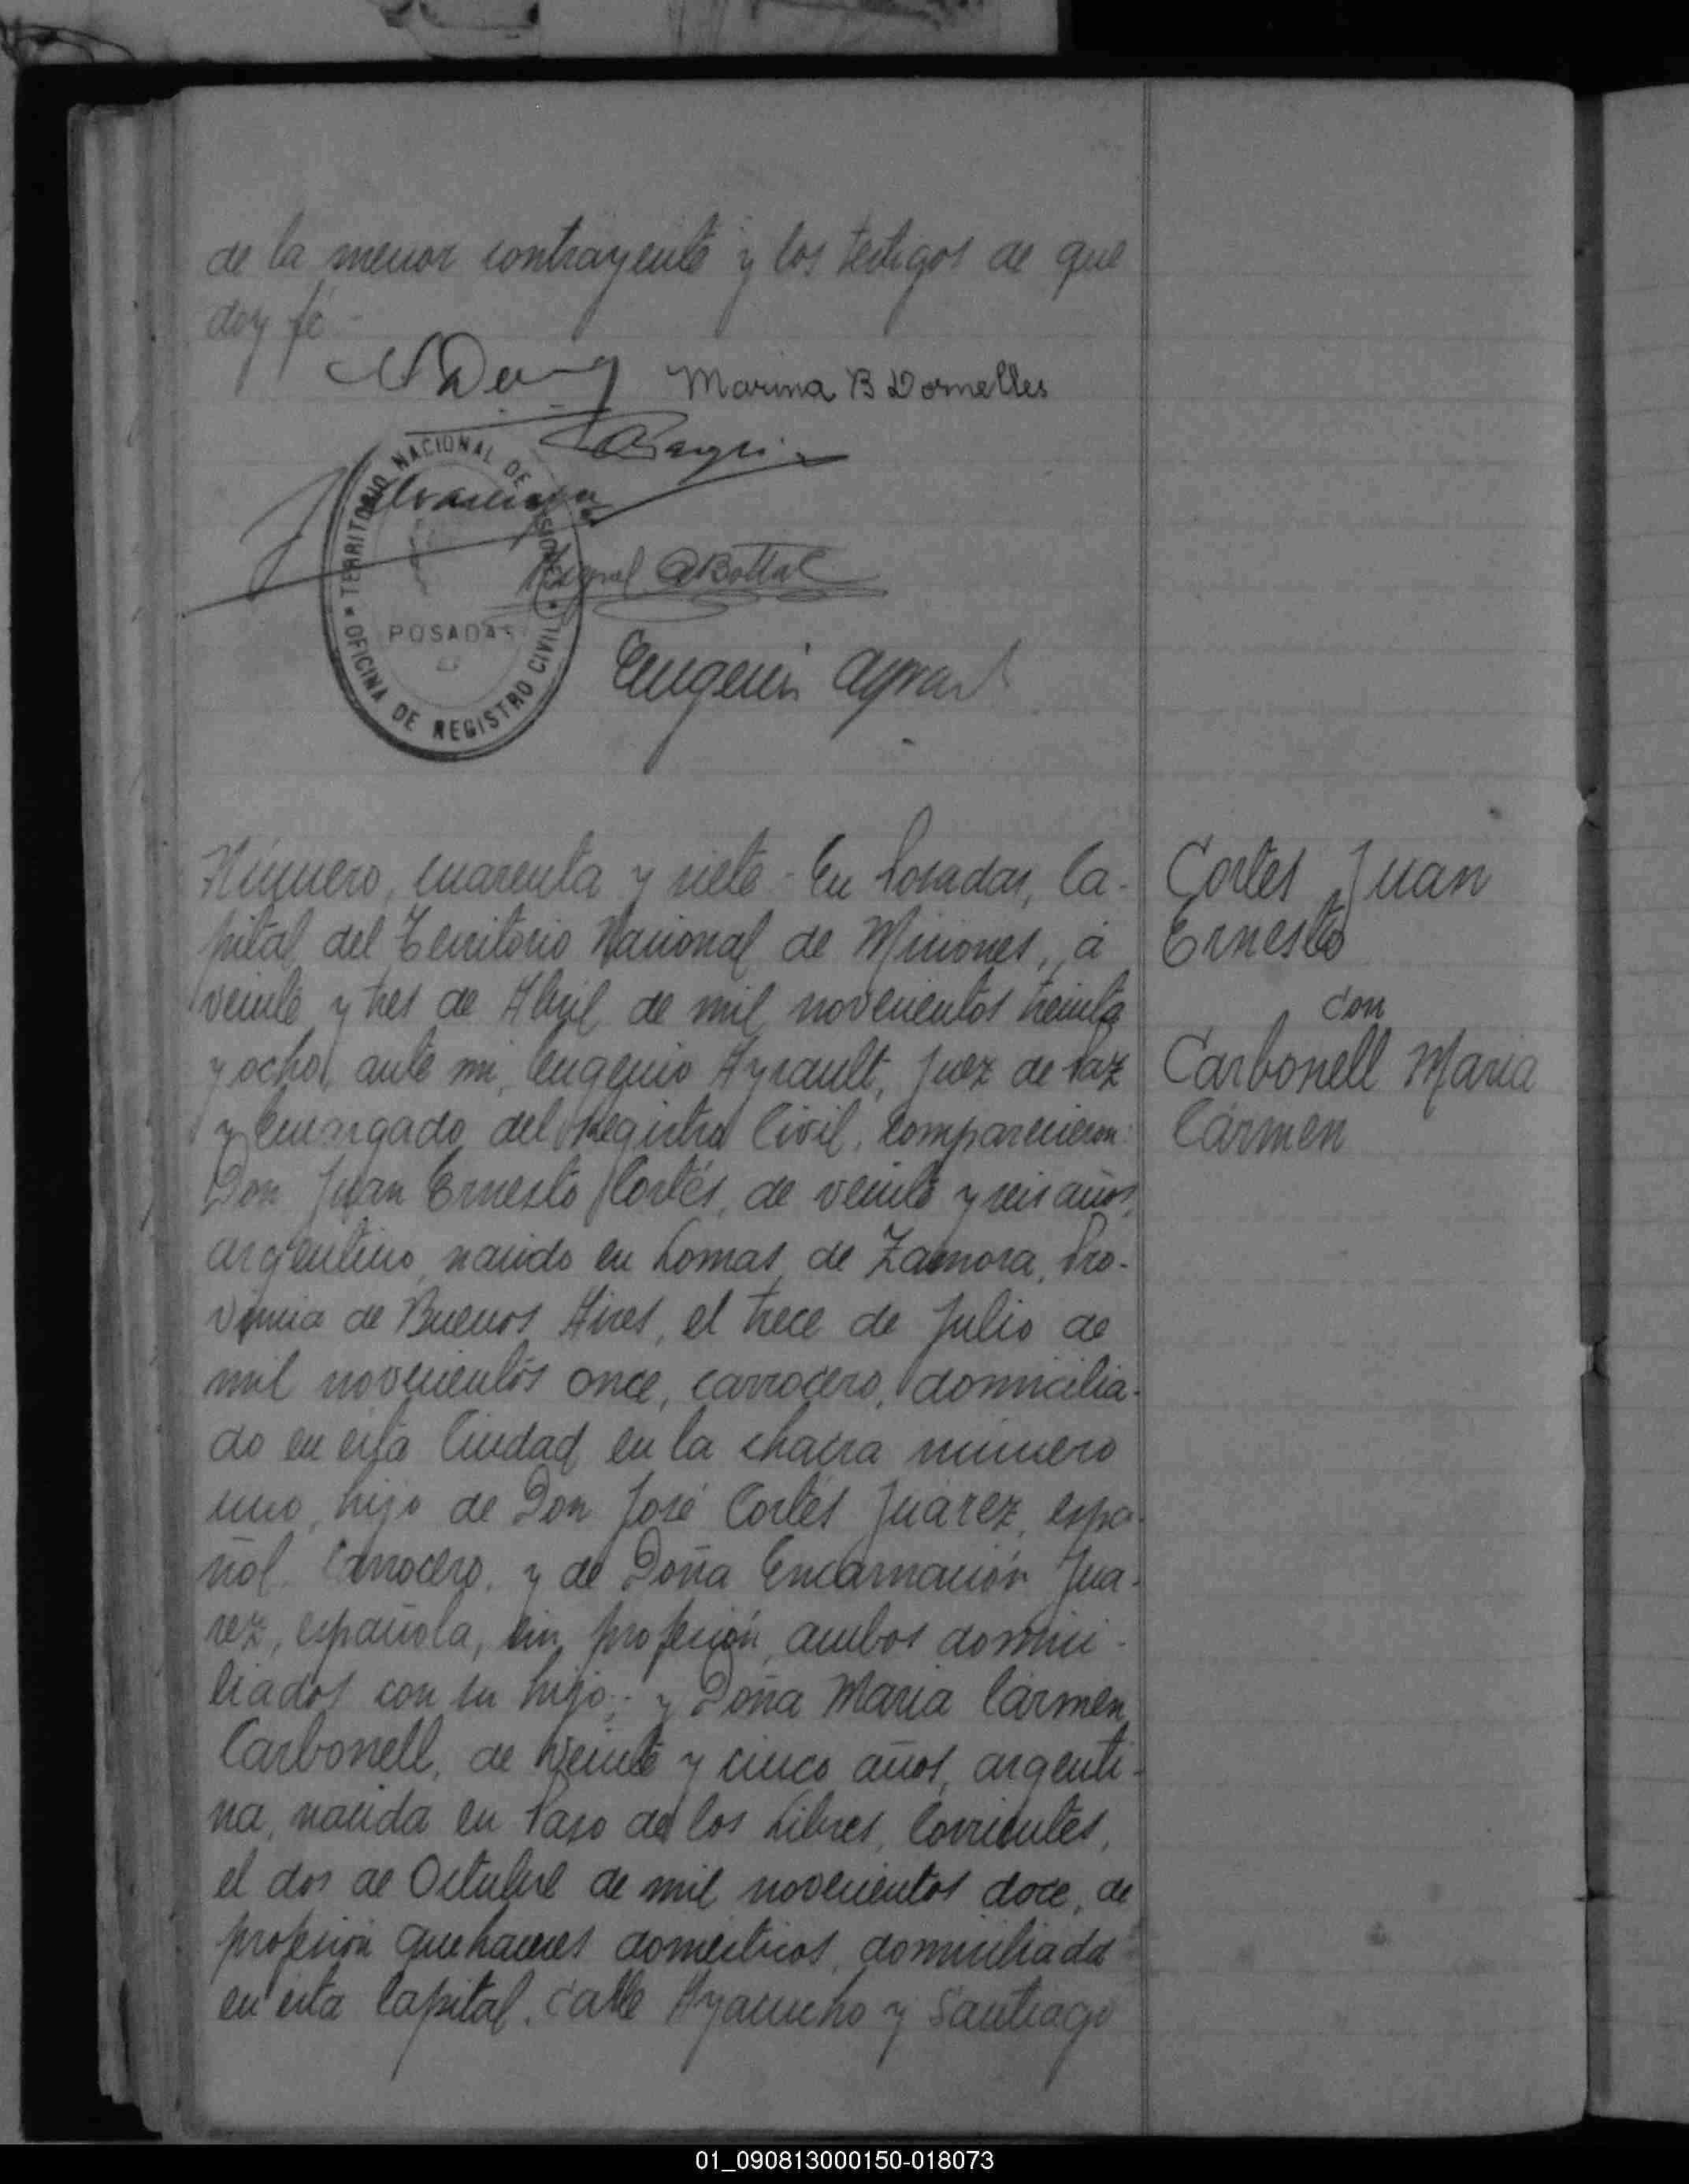 de la menor contrayente y los testigos de que
doy fé.-
Marina B Dornelles
TERRITORIO NACIONAL DE MISIONES
POSADAS
OFICINA DE REGISTRO CIVIL
Eugenio Ayrault
Número, cuarenta y siete.- En Posadas, Ca-
pital del Territorio Nacional de Misiones, á
veinte y tres de Abril de mil novecientos treinta
y ocho, ante mi, Eugenio Ayrault, Juez de Paz
y Encargado del Registro Civil, comparecieron:
Don Juan Ernesto Cortés, de veinte y seis años,
argentino, nacido en Lomas de Zamora, Pro-
vincia de Buenos Aires, el trece de Julio de
mil novecientos once, carrocero, domicilia-
do en esta Ciudad en la chacra número
uno, hijo de Don José Cortés Juárez, espa-
ñol, Carrocero, y de Doña Encarnación Jua-
rez, española, sin profesión, ambos domici-
liados con su hijo; y Doña Maria Cármen
Carbonell, de veinte y cinco años, argenti-
na, nacida en Paso de los Libres, Corrientes,
el dos de Octubre de mil novecientos doce, de
profesión quehaceres domésticos, domiciliada
en esta Capital, calle Ayacucho y Santiago
Cortes Juan
Ernesto
con
Carbonell Maria
Cármen
01_090813000150-018073